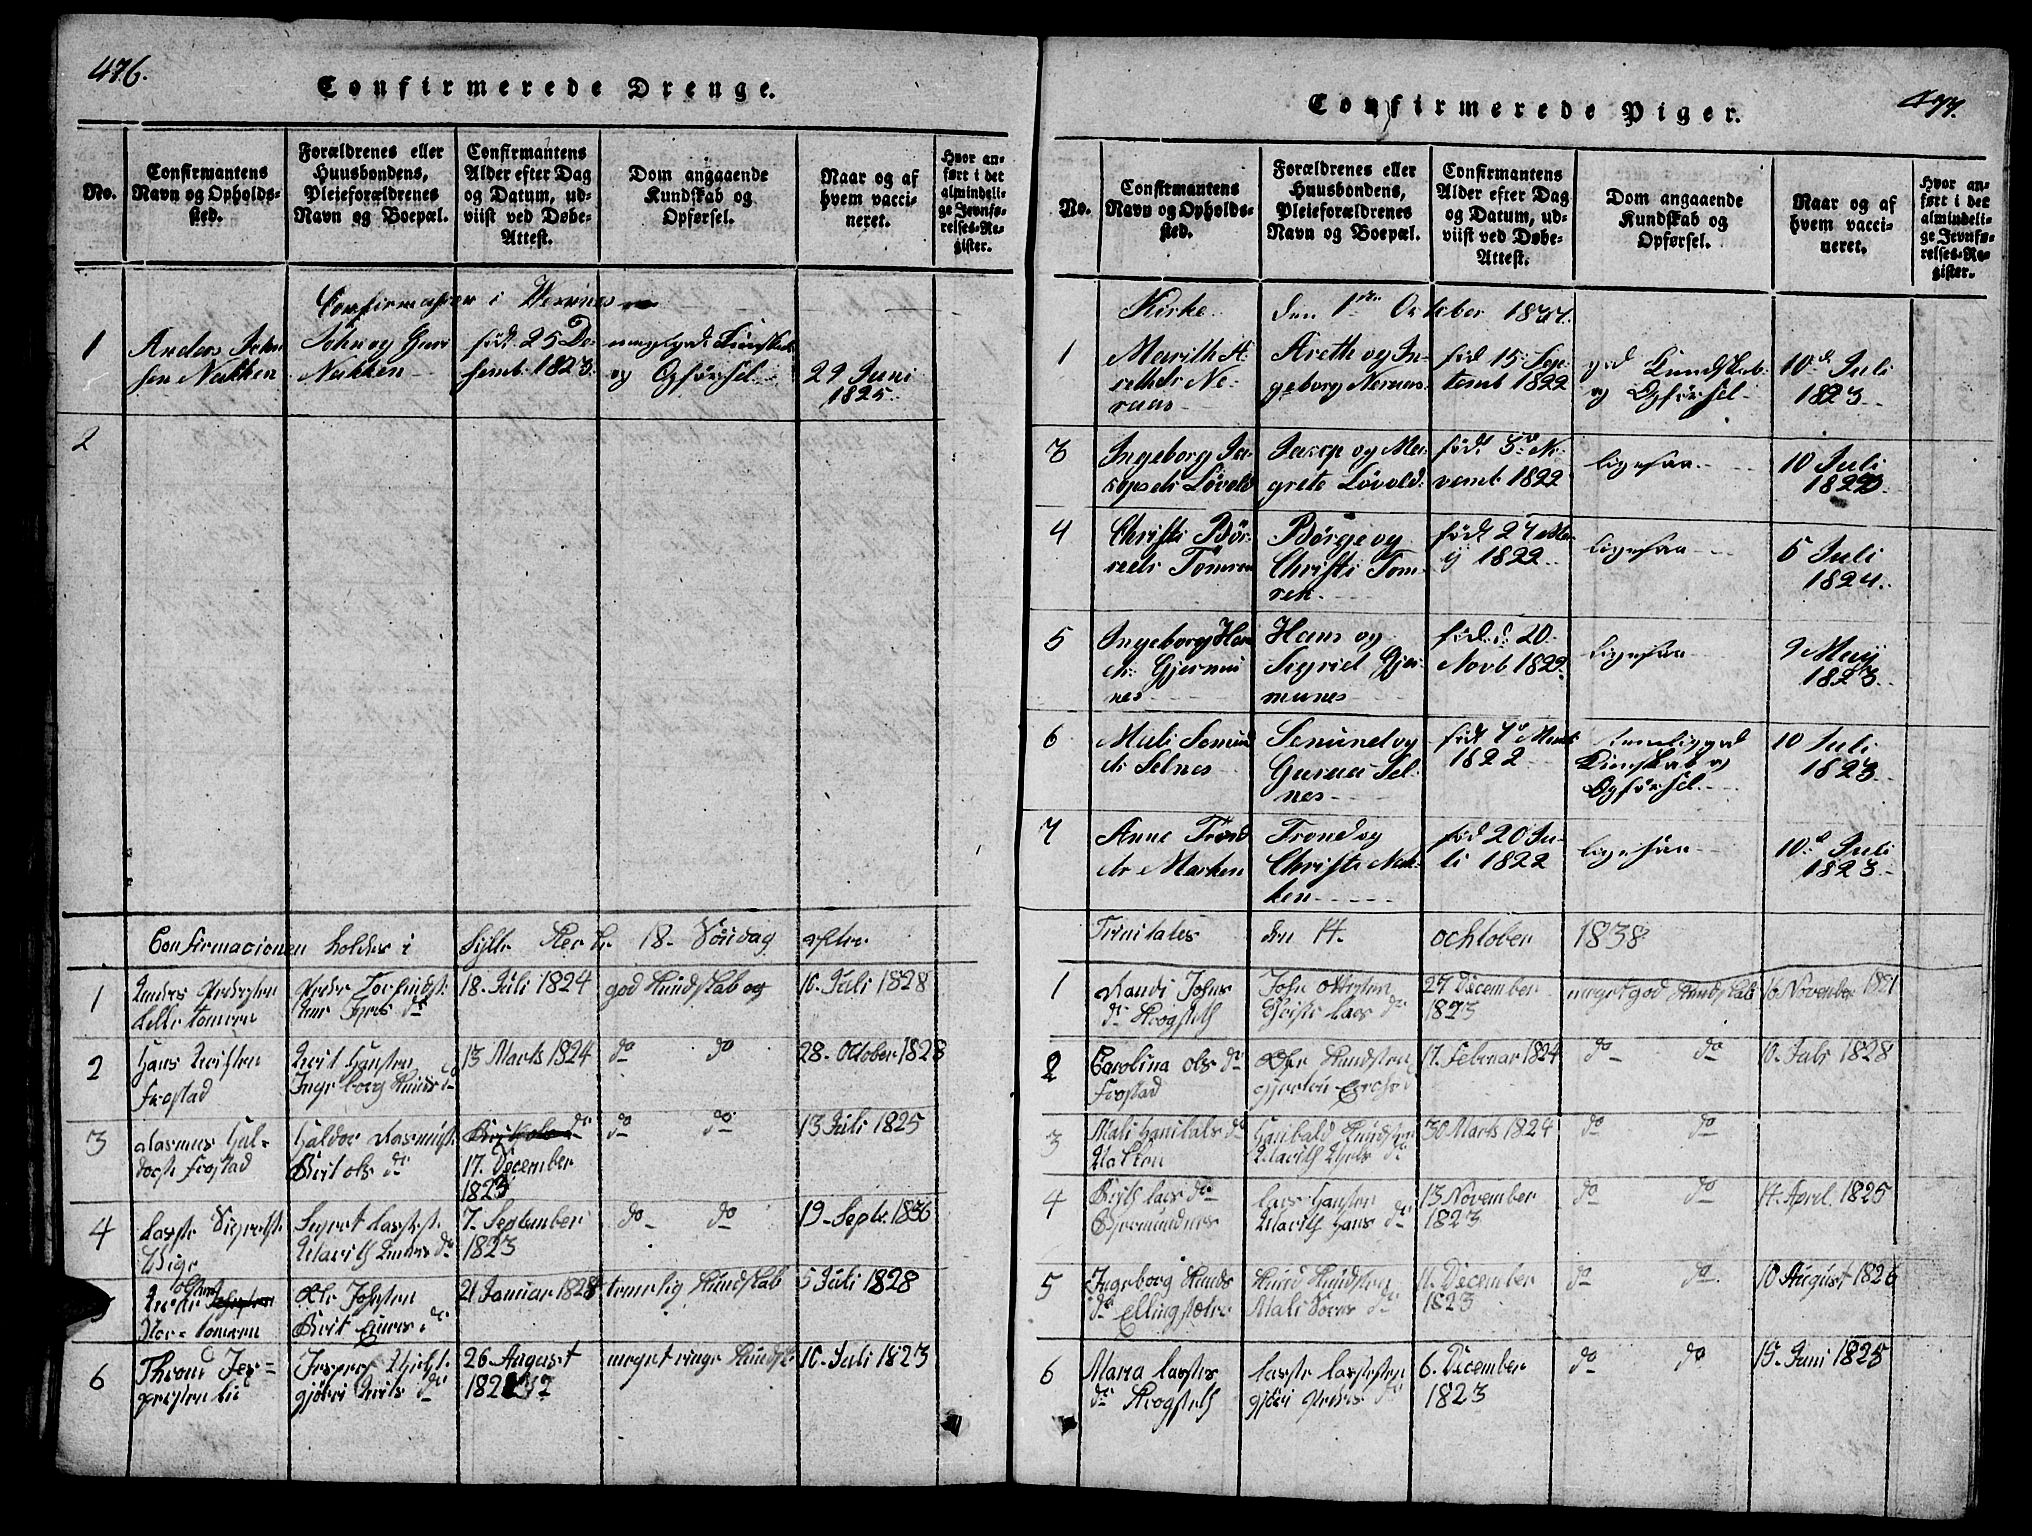 476.
Confirmerede Drenge.
No.
Confirmantens
Navn og Opholds-
sted.
Forældrenes eller
Huusbondens,
Pleieforældrenes
Navn og Boepæl.
Confirmantens
Alder efter Dag
og Datum, ud-
viist ved Døbe-
Attest.
Dom angaaende
Kundskab og
Opførsel.
Naar og af
hvem vacci-
neret.
Hvor an-
ført i det
almindeli-
ge Jevnfø-
relses-Re-
gister.
Confirmerer i
1
Anders John
sen Nakken
John og Guri
Nakken
født 25 De-
semb. 1823.
Kundskab
og Opførsel
29 Juni
1825.
2
Confirmacionen holdes i Sylte 18. Söndag efter
1
Anders Pedersen
tomren
Peder
dr
18. Juli 1824
god Kundskab og
16. Juli 1828
2
Hans
Frostad
Hansten
Ingeborg Knuds dr
13 Marts 1824
do do
28. October 1828
3
Rasmus Hal-
dorst Frostad
Haldor Rasmust
Birit ols dr
17. December
1823
do do
13 Juli 1825
4
Lasse
Marith dr
7. September
1823
do do
19. Septr. 1836
5
tomren
Ole Johsten
Birit dr
21 Januar 1828
temelig Kundskab
5 Juli 1828
6
Thrond Jes-
persten Lie
Jesper
gjöri dr
26 August
182
meget ringe Kundsk
10. Juli 1823
477.
Confirmerede Piger.
No.
Confirmantens
Navn og Opholds-
sted.
Forældrenes eller
Huusbondens,
Pleieforældrenes
Navn og Boepæl.
Confirmantens
Alder efter Dag
og Datum, ud-
viist ved Døbe-
Attest.
Dom angaaende
Kundskab og
Opførsel.
Naar og af
hvem vacci-
neret.
Hvor an-
ført i det
almindeli-
ge Jevnfø-
relses-Re-
gister.
Kirke den 1 October
1
Marith A-
rethdr Ne-
raas
Areth og In-
geborg Neraas
fød 15 Sep-
temb 1822
god Kundskab
og Opførsel
10d Juli
1823
3
Ingeborg Ja-
copsdr Lövold
Jacop og Mar-
grete Lövold
født 3d No-
vemb 1822
ligesaa
10 Juli
4
Christi Bör-
Tomren
Börge og
Christi Tom-
ren
født 27 Ma-
y 1822
ligesaa
5 Juli
1824.
5
Ingeborg Han
dr Gjermu
nes
Hans og
Sigrid Gjer-
munes
fød d 20
Novb 1822
ligesaa
9 Maij
1823
6
Mali Semun
dr Selnes
Semund og
Gurua Sel-
nes
1822
temelig god
Kundskab og
Opførsel
10 Juli
1823
7
Anne Trond
dr Marken
Trond og
Christi Nak-
ken
fød 20 Ju-
li 1822
ligesaa
10d Juli
1823
Trinitates den 14. ochtober 1838
1
Randi Johns
dr Skogsteth
John
Lars dr
27 December
1823
meget god Kundskab
16 November 1821
2
Carolina ols dr
Frostad
Knudsten
17. Februar 1824
do do
10. Juli 1828
3
Mali Hanibals dr
Hanibald Knudsten
Marith dr
30 Marts 1824
do do
4
Birith Lars dr
Gjermundnes
Lars Hansten
Marith Hans dr
13 November
1823
do do
14. April. 1825
5
Ingeborg Knuds
dr Ellingsæter
Knud Knudsten
Mali dr
11. December
1823
do do
10 August 1826
6
Maria Lasses
dr Skogsteth
Lasse Lassesten
gjöri Peders dr
6. December
1823
do do
15. Juni 1825